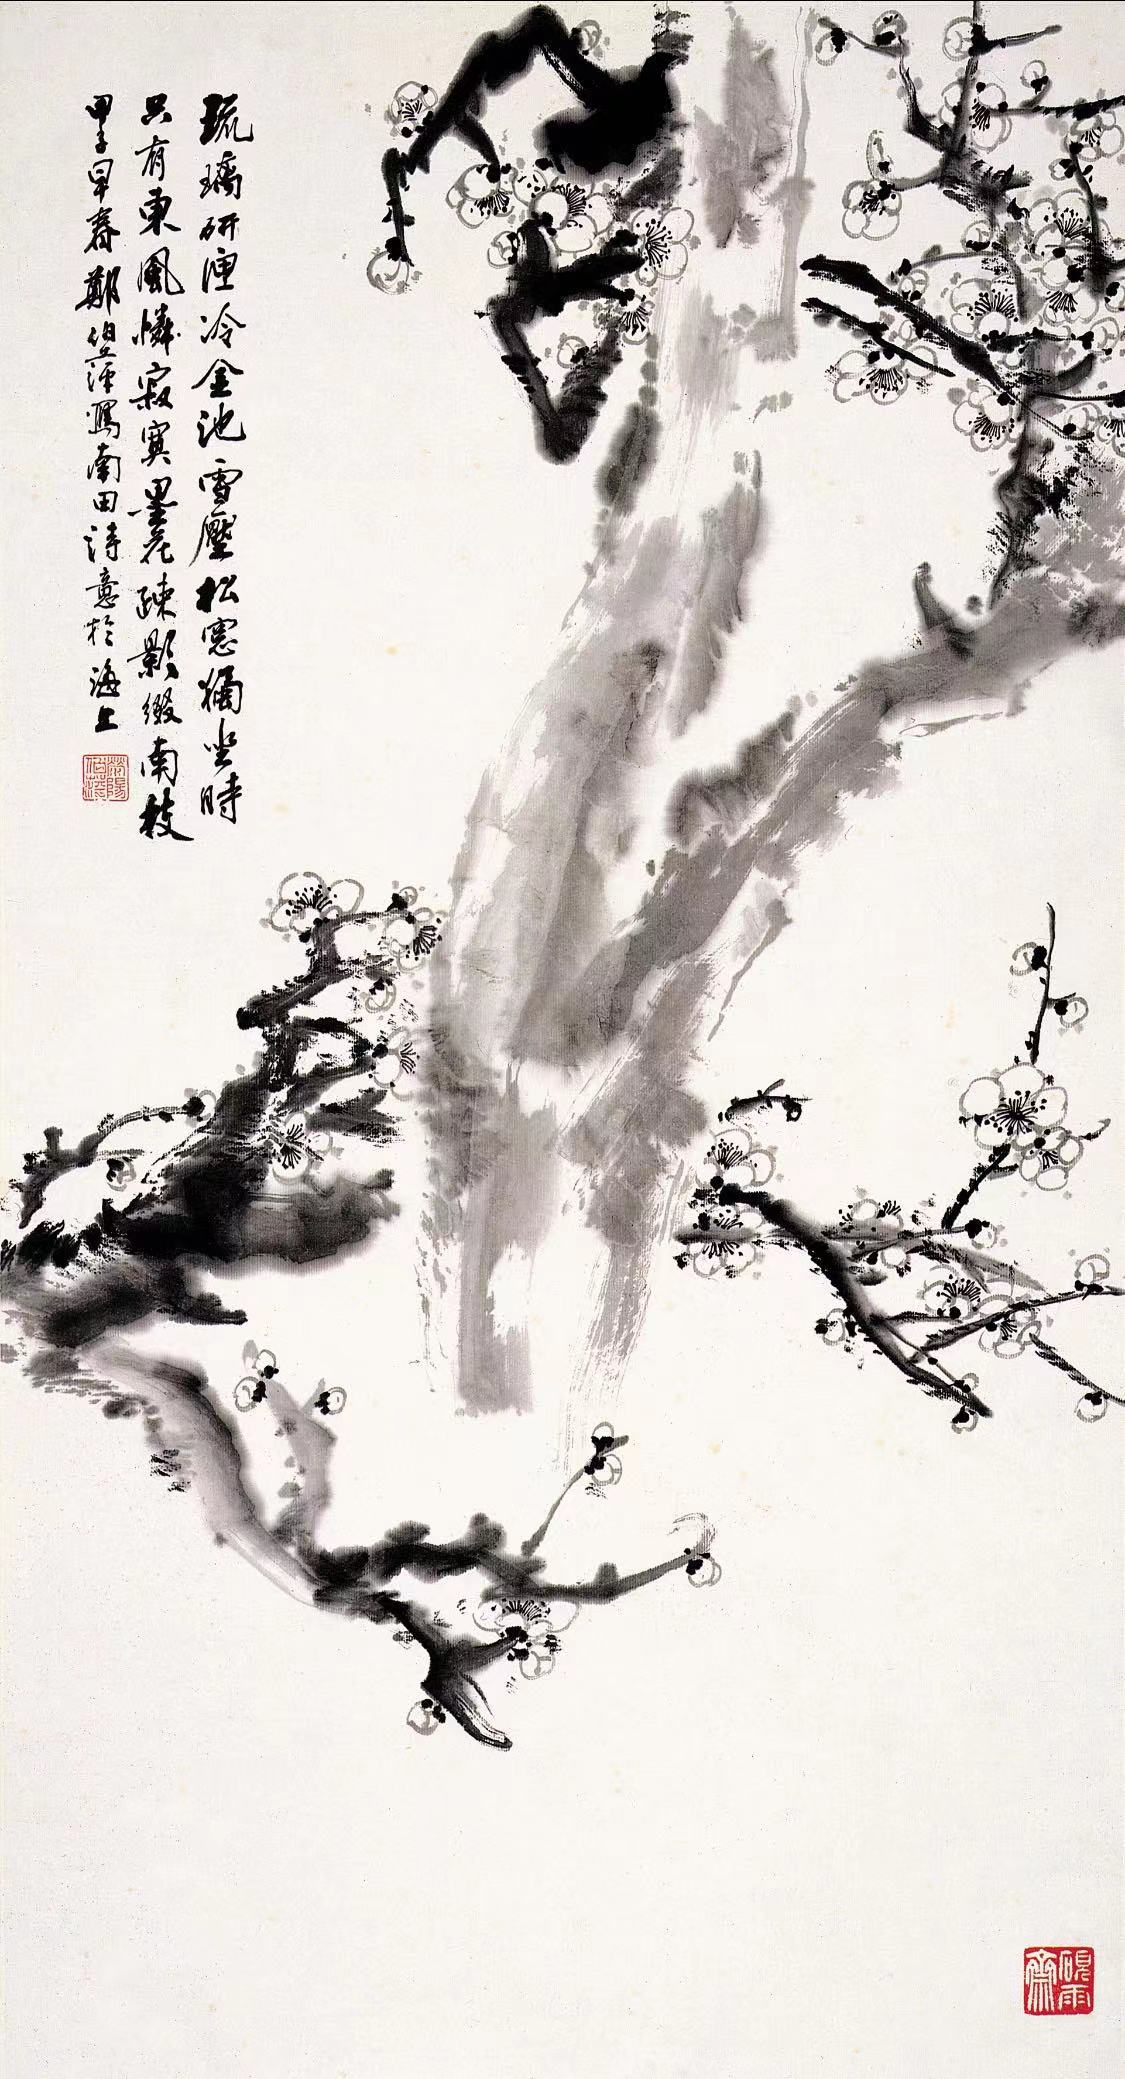 琉璃研匣冷金池雪壓松窓獨坐時
只有東風憐寂寞墨花疎影綴南枝
甲子早春鄭伯萍寫南田詩意於海上
滎陽伯萍
硯雨齋